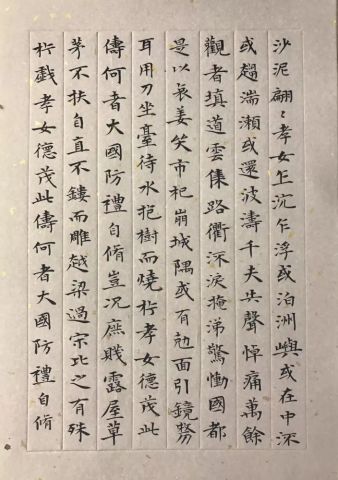 沙泥翩〻孝女乍沉乍浮或泊洲嶼或在中流
或趨湍瀬或還波濤千夫共聲悼痛萬餘
觀者填道雲集路衢流淚掩涕驚慟國都
是以哀姜哭市杞崩城隅或有尅面引鏡剺
耳用刀坐臺待水抱樹而燒扵孝女德茂此
儔何者大國防禮自脩豈況庶賤露屋草
茅不扶自直不鏤而雕越梁過宗比之有殊
扵戯孝女德茂此儔何者大國防禮自脩